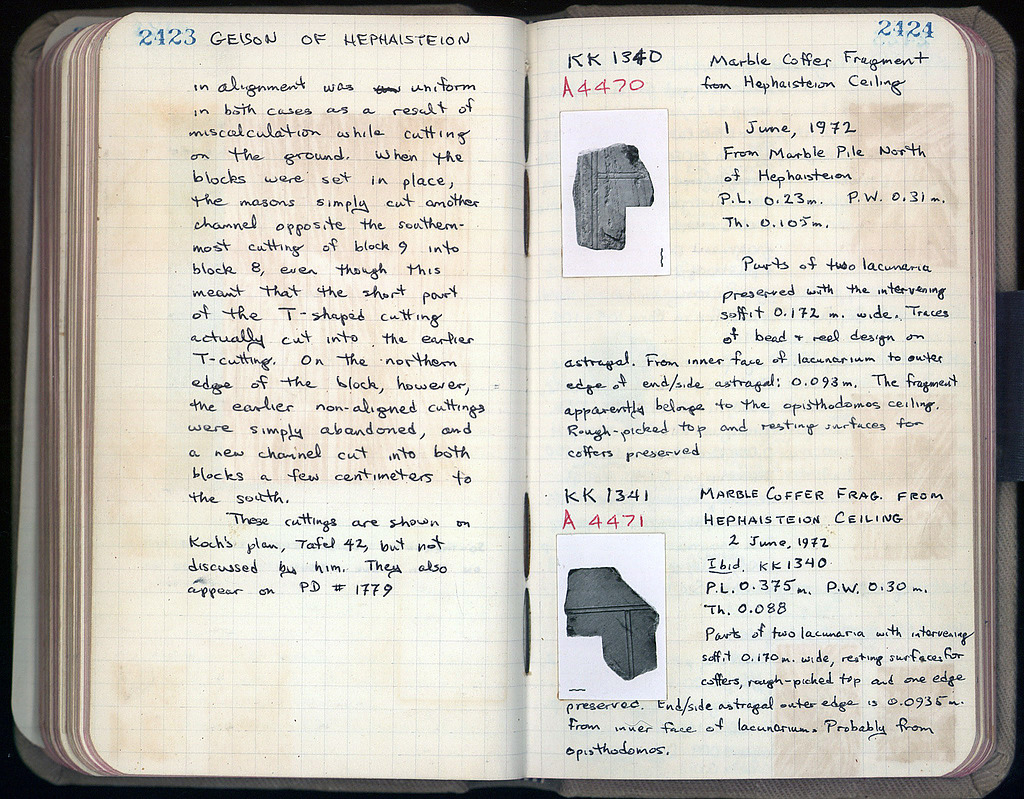 2423 GEISON OF HEPHAISTEION
in alignment was uniform
in both cases as a result of
miscalculation while cutting
on the ground. When the
blocks were set in place,
the masons simply cut another
channel opposite the southern-
most cutting of block 9 into
block 8, even though this
meant that the short part
of the T-shaped cutting
actually cut into the earlier
T-cutting. On the northern
edge of the block, however,
the earlier non-aligned cuttings
were simply abandoned, and
a new channel cut into both
blocks a few centimeters to
the south.
These cuttings are shown on
Koch's plan, Tafel 42, but not
discussed by him. They also
appear on PD # 1779
2424
KK 1340
A 4470
Marble Coffer Fragment
from Hephaisteion Ceiling
1 June, 1972
From Marble Pile North
of Hephaisteion
P.L. 0.23m. P.W. 0.31m.
Th. 0.105m.
Parts of two lacunaria
preserved with the intervening
soffit 0.172 m. wide. Traces
of bead + reel design on
astragal. From inner face of lacunarium to outer
edge of end/side astragal: 0.093m. The fragment
apparently belongs to the opisthodomos ceiling.
Rough-picked top and resting surfaces for
coffers preserved
KK 1341
A 4471
MARBLE COFFER FRAG. FROM
HEPHAISTEION CEILING
2 June, 1972
Ibid. KK 1340
P.L. 0.375m. P.W. 0.30m.
Th. 0.088
Parts of two lacunaria with intervening
soffit 0.170m. wide, resting surfaces for
coffers, rough-picked top and one edge
preserved. End/side astragal outer edge is 0.0935m.
From inner face of lacunarium. Probably from
opisthodomos.